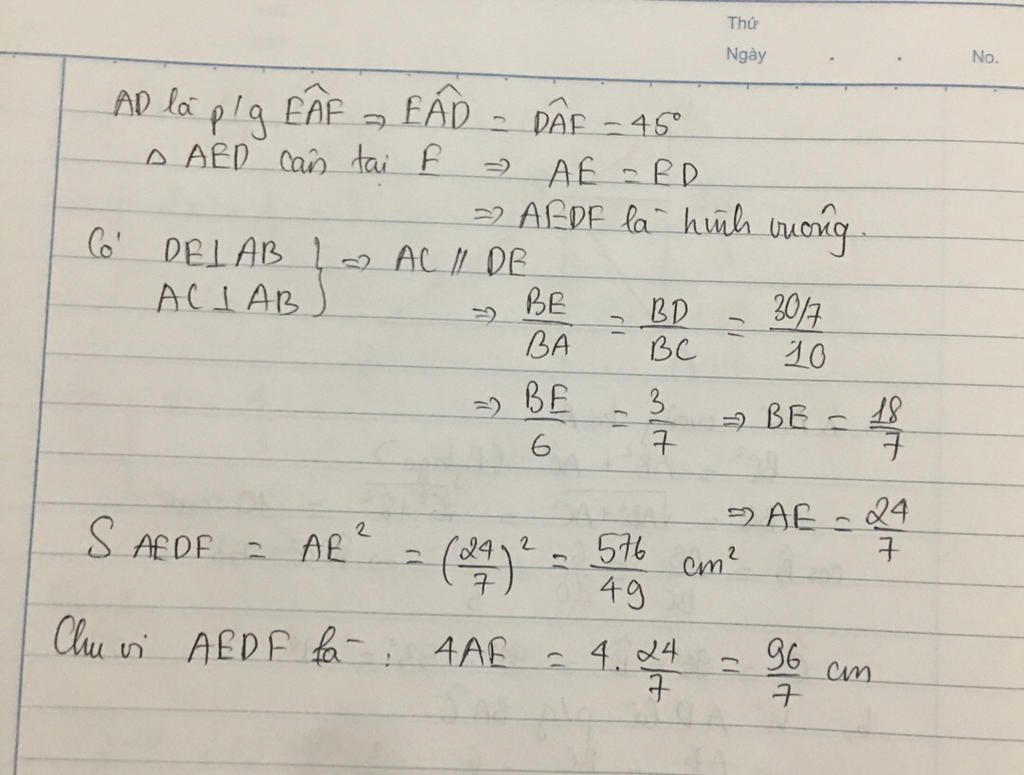 Thứ
Ngày . . No.
AD là p/g EÂF ⇒ EÂD = DÂF = 45°
△ AED cân tại E ⇒ AE = ED
⇒ AEDF là hình vuông.
Có DE⊥AB } ⇒ AC // DE
AC⊥AB
⇒ BE/BA = BD/BC = (30/7)/10
⇒ BE/6 = 3/7 ⇒ BE = 18/7
⇒ AE = 24/7
S AEDF = AE² = (24/7)² = 576/49 cm²
Chu vi AEDF là : 4AE = 4. 24/7 = 96/7 cm